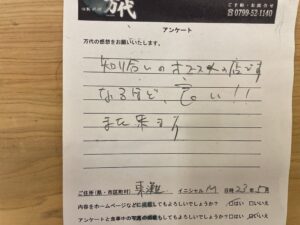 万代
ご予約・お問合せ
☎0799-52-1140
アンケート
万代の感想をお願いいたします。
知り合いのオススメの店です
なるほど、でい!!
また来ます
ご住所(県・市区町村) 東灘 イニシャル M 日時 23年5月
内容をホームページなどに掲載してもよろしいでしょうか? □はい □いいえ
アンケートと食事中の写真の掲載もしてもよろしいでしょうか? □はい □いいえ